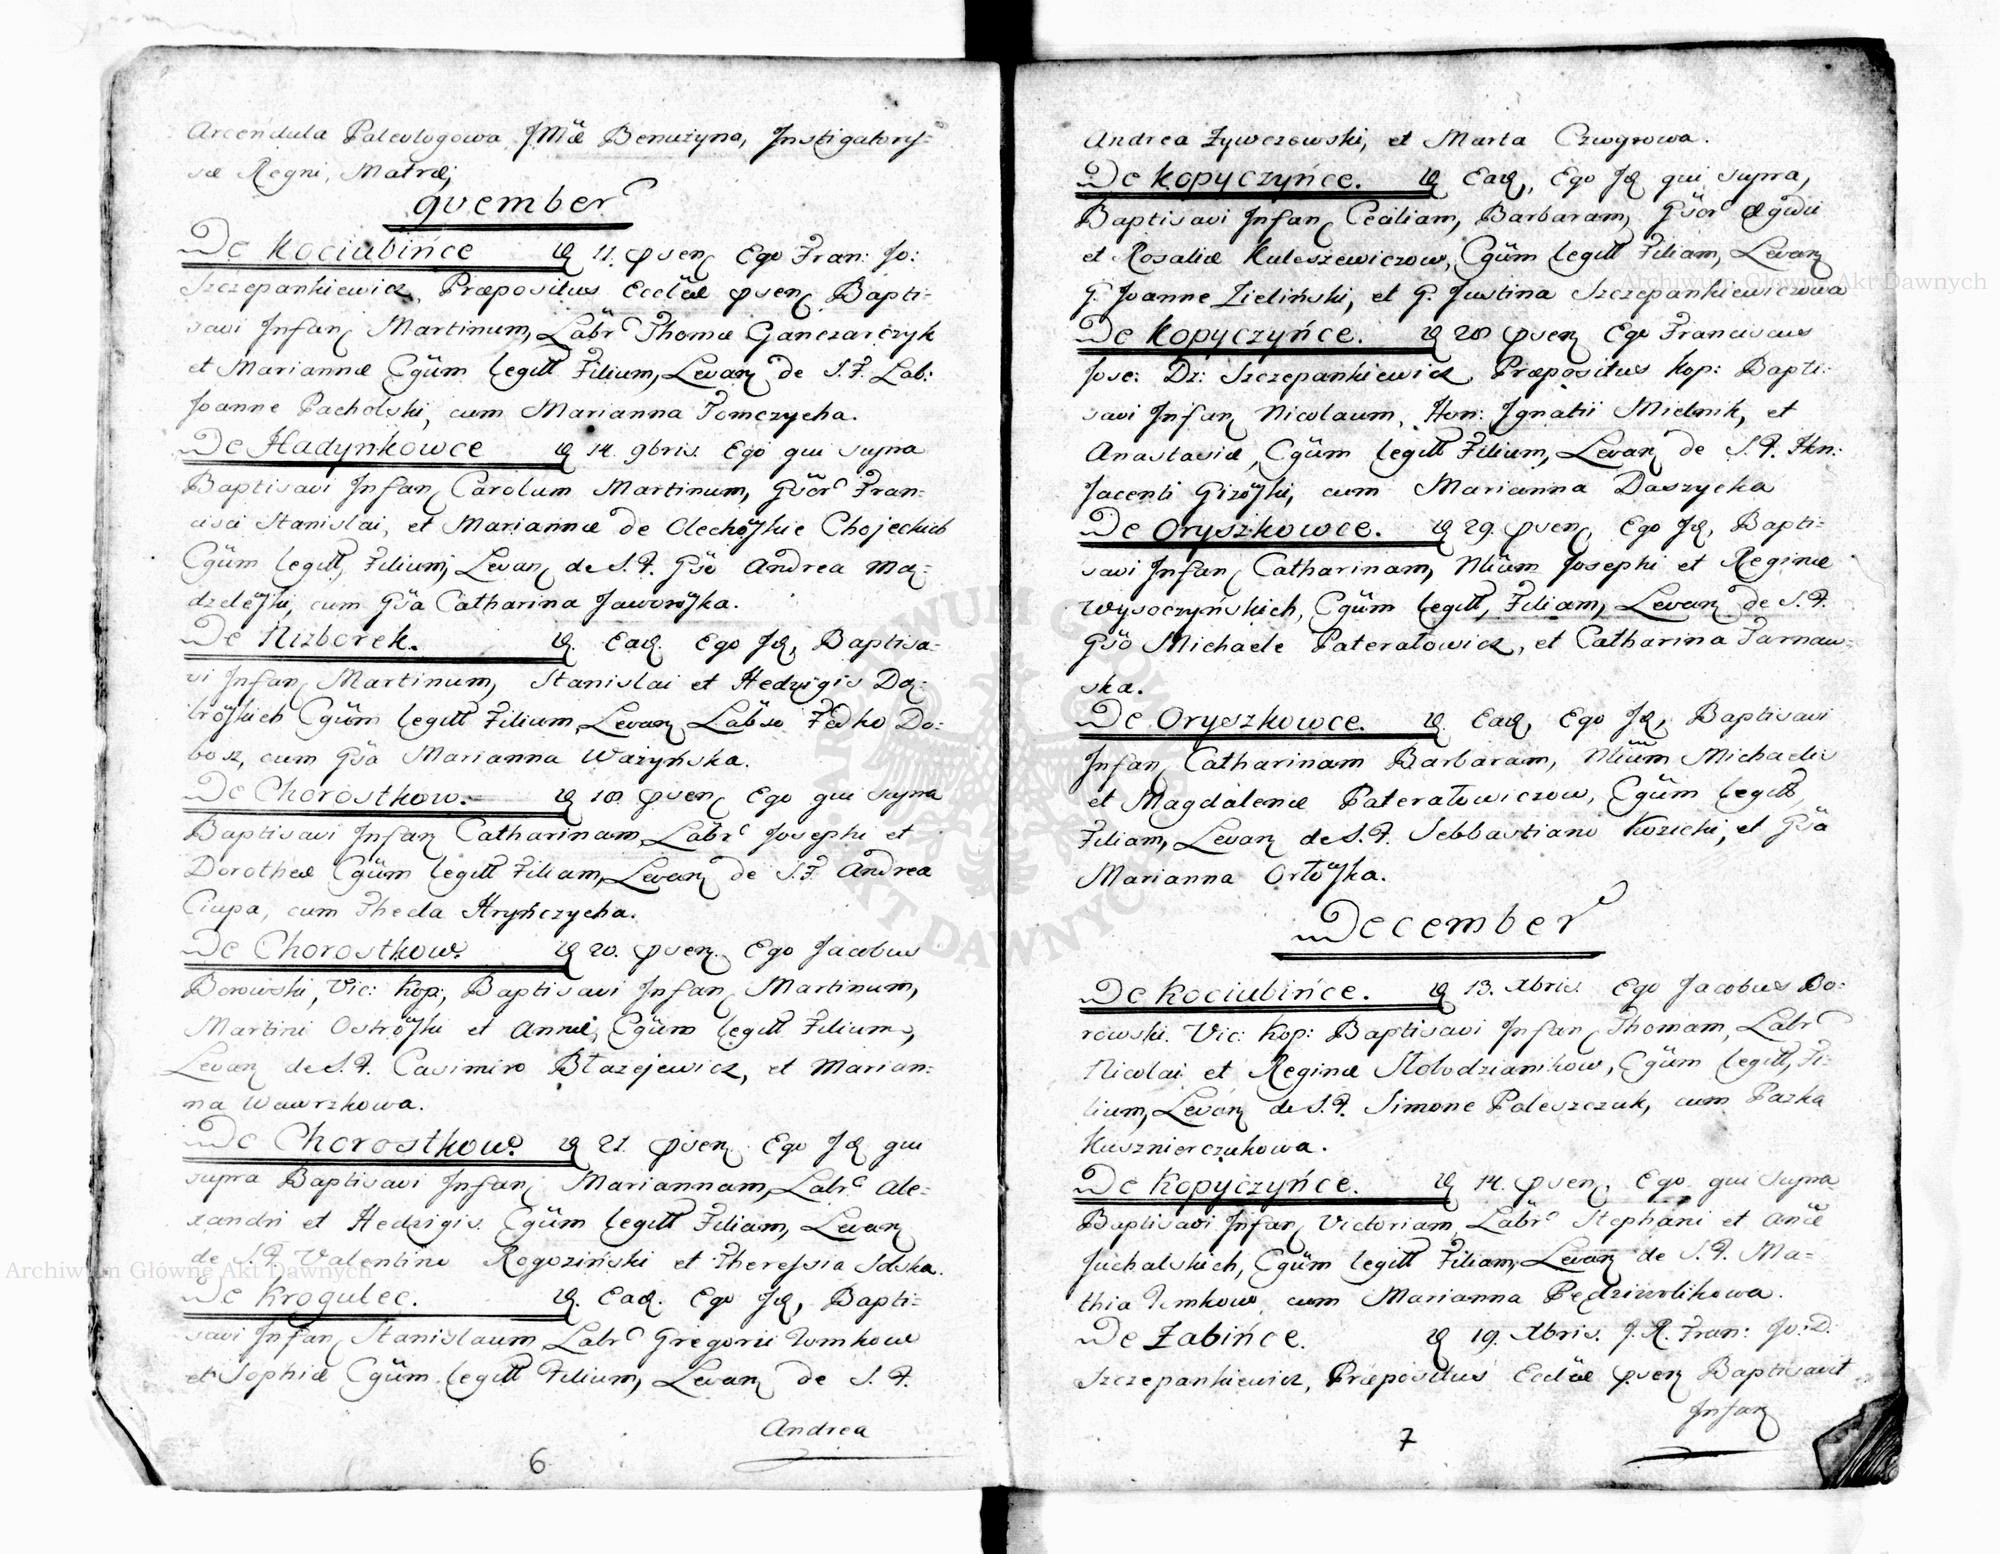 Arcendula Paleologowa JMæ Benużyna, Instigatoris=
sæ Regni, Matræ;
9vember
De Kociubińce 11. præsen Ego Fran: Jo:
Szczepankiewicz, Præpositus Ecclæ præsen Bapti=
savi Infan Martinum, Labr Thomæ Ganczarczyk
et Mariannæ Cgüm legitt Filium, Levan de S. F. Lab:
Joanne Pacholski, cum Marianna Tomczycha.
De Hadynkowce 14. 9bris. Ego qui supra
Baptisavi Infan Carolum Martinum, Gsor Fran=
cisci Stanislai, et Mariannæ de Olechowskie Chojeckich
Cgüm legitt, Filium, Levan de S. F. Gso Andrea Ma=
dzelewski, cum Gsa Catharina Jaworowska.
De Nizborek. Ead. Ego Id, Baptisa=
vi Infan Martinum, Stanislai et Hedvigis Da=
browskich Cgüm legitt Filium, Levan Labso Fedko Do=
bosz, cum Gsa Marianna Ważyńska.
De Chorostkow. 18. præsen Ego qui supra
Baptisavi Infan Catharinam, Labr Josephi et
Dorotheæ Cgüm legitt Filiam, Levan de S. F. Andrea
Ciupa, cum Thecla Hryńczycha.
De Chorostkow 20. præsen. Ego Jacobus
Borowski, Vic: Kop:, Baptisavi Infan Martinum,
Martini Ostrowski et Annæ, Cgüm legitt Filium,
Levan de S. F. Casimiro Błażejewicz, et Marian=
na Wawrzkowa.
De Chorostkow 21. præsen. Ego Id qui
supra Baptisavi Infan Mariannam, Labr Ale=
xandri et Hedvigis. Cgüm legitt Filiam, Levan
de S. F. Valentino Rogoziński et Theressia Solska.
De Krogulec. Ead. Ego Id, Bapti=
savi Infan Stanislaum Labr Gregorii Tomkow
et Sophiæ Cgüm legitt Filium, Levan de S. F.
Andrea
6
Andrea Żywczewski, et Marta Czwgrowa.
De Kopyczyńce. Ead, Ego Id qui supra,
Baptisavi Infan Ceciliam, Barbaram, Gsor Ægidii
et Rosaliæ Kuleszewiczow, Cgüm legitt Filiam, Levan
G. Joanne Zieliński, et G. Justina Szczepankiewiczowa
De Kopyczyńce. 28 præsen Ego Franciscus
Jose: Dz: Szczepankiewicz Præpositus Kop: Bapti=
savi Infan Nicolaum, Hon: Ignatii Mielnik, et
Anastasiæ, Cgüm legitt Filium, Levan de S. F. Hon:
Jacenti Gizowski, cum Marianna Daszycka
De Oryszkowce. 29. præsen, Ego Id, Bapti=
savi Infan Catharinam, Nlium Josephi et Reginæ
Wysoczyńskich, Cgüm legitt, Filiam, Levan de S. F.
Gso Michaele Paterałowicz, et Catharina Tarnaw=
ska.
De Oryszkowce. Ead, Ego Id, Baptisavi
Infan Catharinam Barbaram, Nlium Michaelis
et Magdalenæ Paterałowiczow, Cgüm legitt,
Filiam, Levan de S. F. Sebbastiano Kozicki, et Gsa
Marianna Orłowska.
December
De Kociubińce. 13. Xbris. Ego Jacobus Bo:
rowski. Vic: Kop: Baptisavi Infan Thomam, Labr
Nicolai et Reginæ Stolodzianikow, Cgüm legitt, Fi=
lium, Levan de S. F. Simone Poleszczuk, cum Pazka
Kusznierczukowa.
De Kopyczyńce. 14. præsen. Ego qui supra
Baptisavi Infan Victoriam, Labr Stephani et Anæ
Juchalskich, Cgüm legitt Filiam, Levan de S. F. Ma=
thia Tomkow, cum Marianna Pędziwolikowa.
De Żabińce. 19. Xbris. J. R. Fran: Jo: D:
Szczepankiewicz, Præpositus Ecclæ præsen Baptisavit
Infan
7
Archiwum Główne Akt Dawnych
Archiwum Główne Akt Dawnych